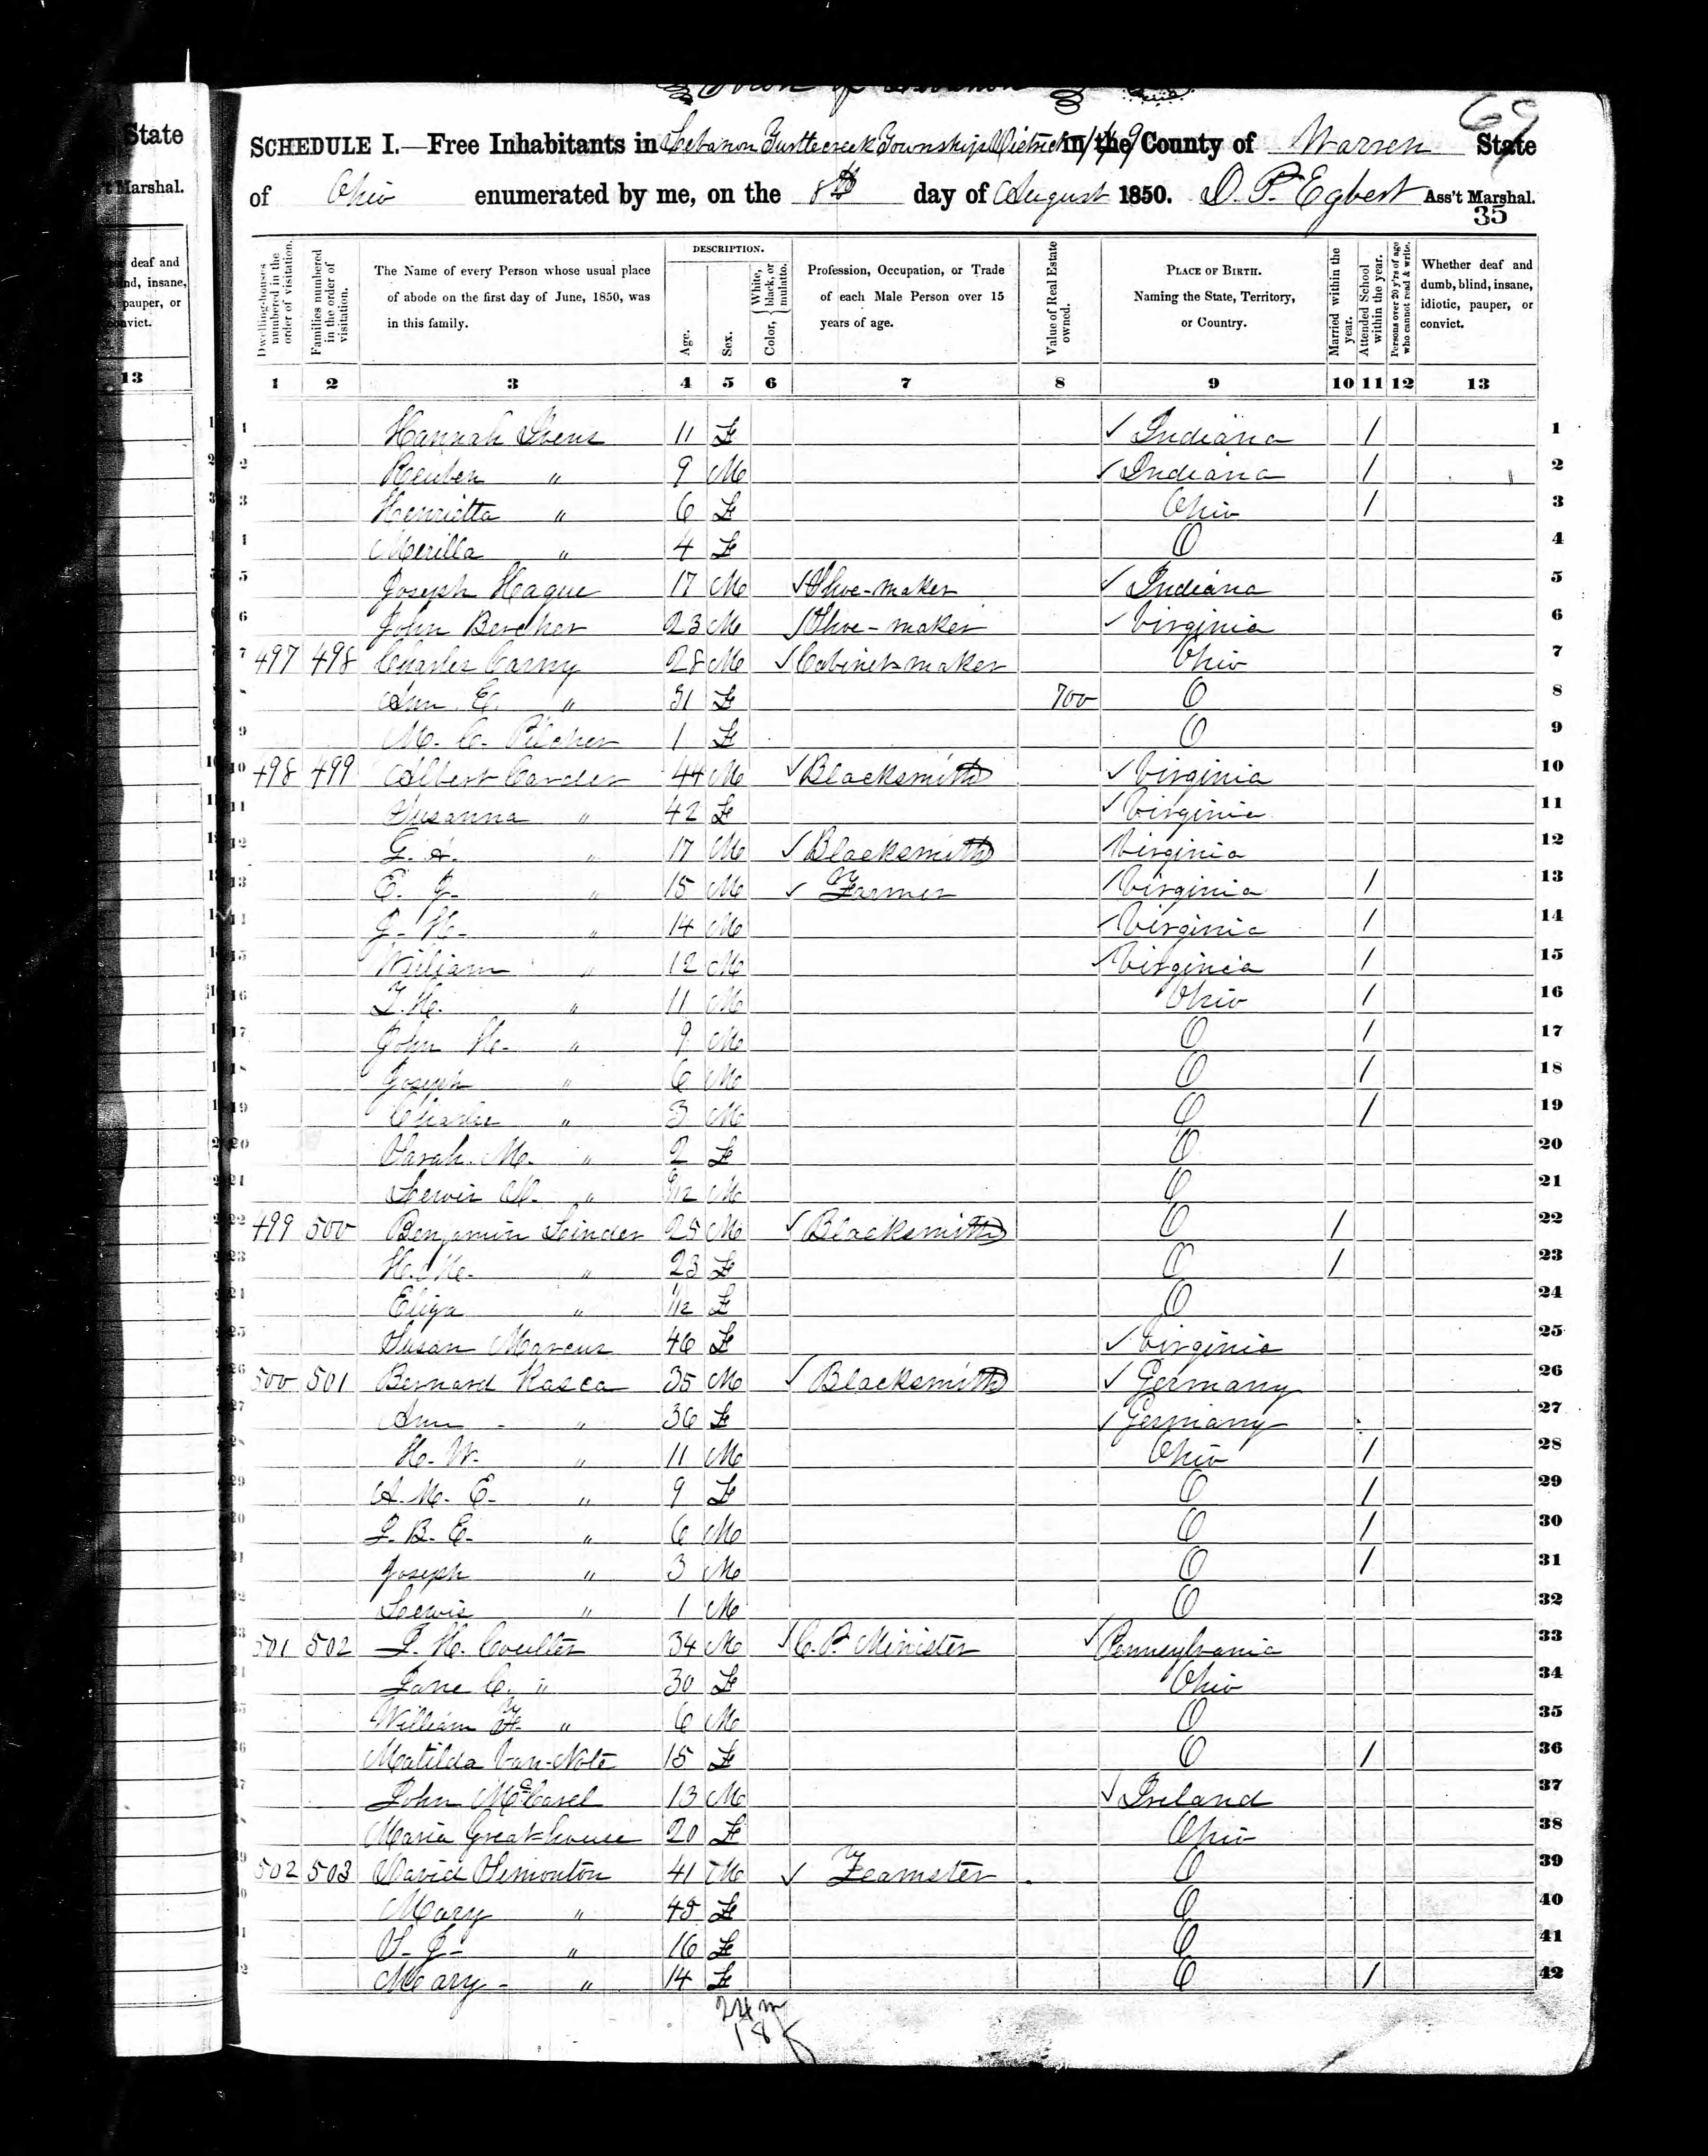 Town of Lebanon
69
SCHEDULE I.—Free Inhabitants in Lebanon Turtlecreek Township District 149 in the County of Warren State
of Ohio enumerated by me, on the 8th day of August 1850. D. P. Egbert Ass't Marshal.
35
State
Marshal.
deaf and
insane,
pauper, or
13
Dwelling-houses numbered in the order of visitation.
Families numbered in the order of visitation.
The Name of every Person whose usual place of abode on the first day of June, 1850, was in this family.
DESCRIPTION.
Age.
Sex.
Color, { White, black, or mulatto.
Profession, Occupation, or Trade of each Male Person over 15 years of age.
Value of Real Estate owned.
PLACE OF BIRTH. Naming the State, Territory, or Country.
Married within the year.
Attended School within the year.
Persons over 20 y'rs of age who cannot read & write.
Whether deaf and dumb, blind, insane, idiotic, pauper, or convict.
1 2 3 4 5 6 7 8 9 10 11 12 13
1 Hannah 11 F ✓ Indiana / 1
2 Reuben " 9 M ✓ Indiana / 2
3 Henrietta " 6 F Ohio / 3
Merilla " 4 F O 4
5 Joseph Hague 17 M ✓ Shoe-maker ✓ Indiana 5
6 John Bercher 23 M ✓ Shoe-maker ✓ Virginia 6
7 497 498 Charles Carny 28 M ✓ Cabinet maker Ohio 7
Ann E. " 31 F 700 O 8
9 M. C. Pilcher 1 F O 9
10 498 499 Albert Carder 44 M ✓ Blacksmith ✓ Virginia 10
11 Susanna " 42 F ✓ Virginia 11
12 G. A. " 17 M ✓ Blacksmith Virginia 12
13 E. J. " 15 M ✓ Farmer Virginia / 13
J. H. " 14 M ✓ Virginia / 14
15 William " 12 M ✓ Virginia / 15
16 T. H. " 11 M Ohio / 16
17 John H. " 9 M O / 17
Joseph " 6 M O / 18
19 Charles " 3 M O / 19
20 Sarah M. " 2 F O 20
21 Lewis A. " 9/12 M O 21
22 499 500 Benjamin Linder 25 M ✓ Blacksmith O / 22
23 H. M. " 23 F O / 23
Eliza " 1/12 F O 24
25 Susan Marcus 46 F ✓ Virginia 25
26 500 501 Bernard Rasca 35 M ✓ Blacksmith ✓ Germany 26
27 Ann " 36 F ✓ Germany 27
H. W. " 11 M Ohio / 28
29 A. M. E. " 9 F O / 29
J. B. E. " 6 M O / 30
31 Joseph " 3 M O / 31
Lewis " 1 M O 32
33 501 502 J. H. Coulter 34 M ✓ C. P. Minister ✓ Pennsylvania 33
Jane C. " 30 F Ohio 34
William F. " 6 M O 35
36 Matilda Van-Note 15 F O / 36
John McCasel 13 M ✓ Ireland 37
Maria Great-house 20 F Ohio 38
502 503 David Simonton 41 M ✓ Teamster O 39
Mary " 45 F O 40
S. J. " 16 F O 41
Mary " 14 F O / 42
24 m
18 f